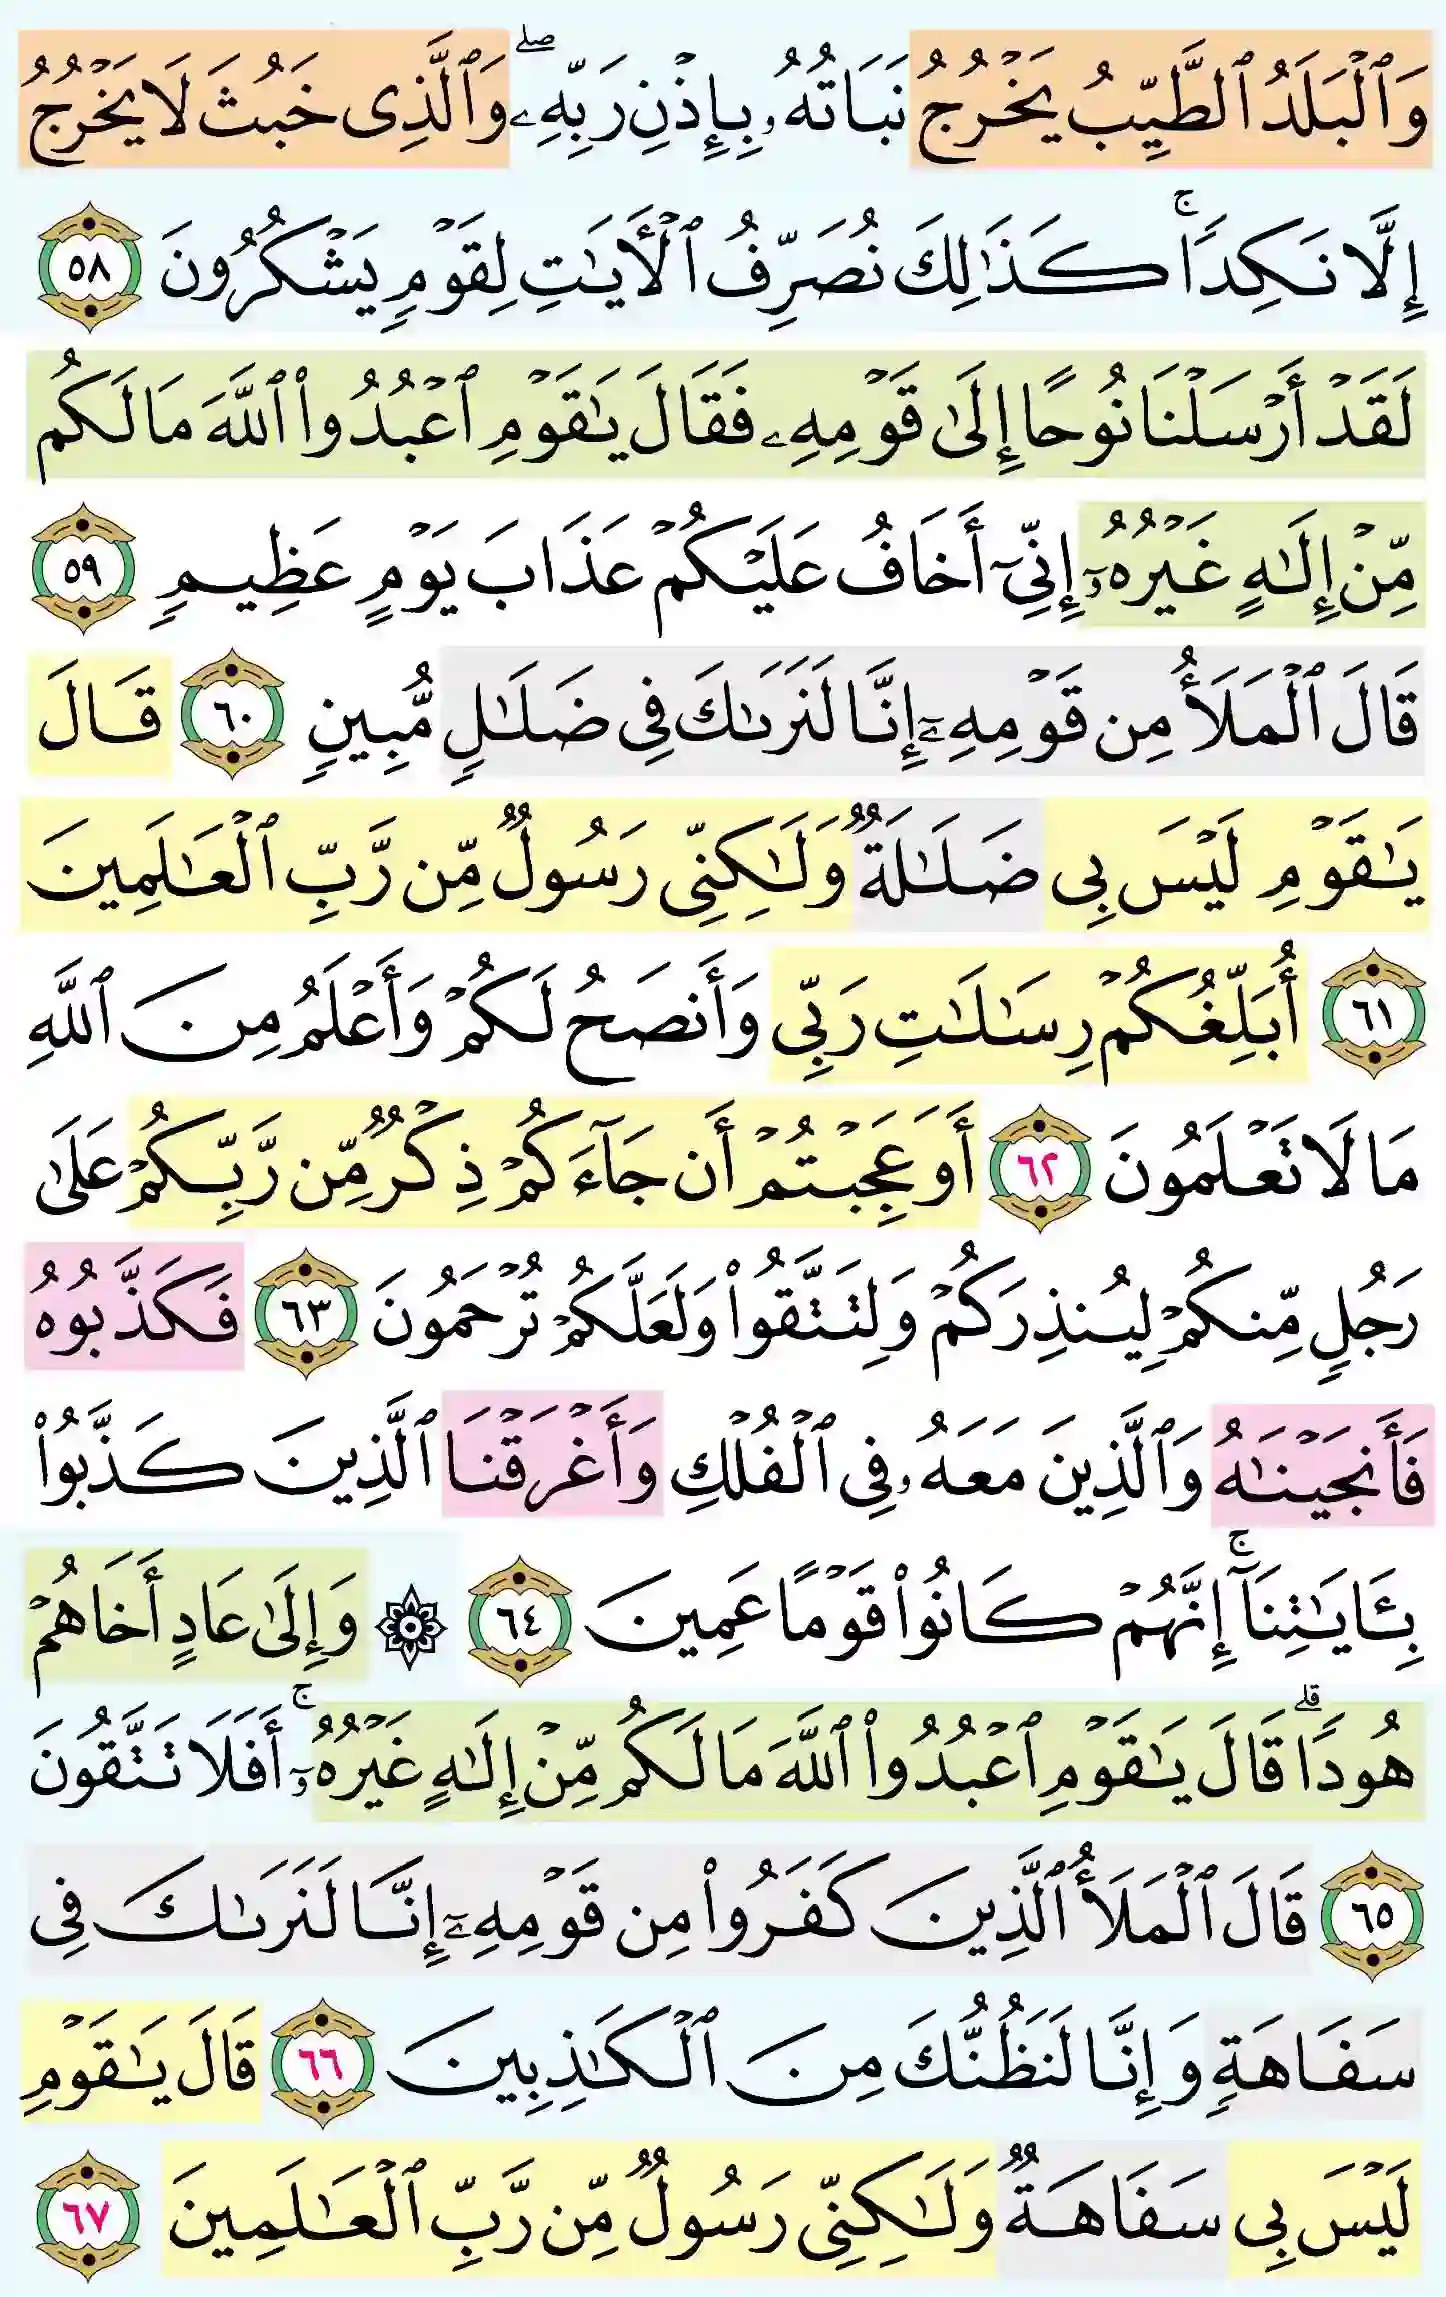 وَٱلۡبَلَدُ ٱلطَّيِّبُ يَخۡرُجُ نَبَاتُهُۥ بِإِذۡنِ رَبِّهِۦۖ وَٱلَّذِى خَبُثَ لَا يَخۡرُجُ
إِلَّا نَكِدًاۚ كَذَٰلِكَ نُصَرِّفُ ٱلۡأٓيَٰتِ لِقَوۡمٍ يَشۡكُرُونَ ٥٨
لَقَدۡ أَرۡسَلۡنَا نُوحًا إِلَىٰ قَوۡمِهِۦ فَقَالَ يَٰقَوۡمِ ٱعۡبُدُواْ ٱللَّهَ مَا لَكُم
مِّنۡ إِلَٰهٍ غَيۡرُهُۥٓ إِنِّىٓ أَخَافُ عَلَيۡكُمۡ عَذَابَ يَوۡمٍ عَظِيمٍ ٥٩
قَالَ ٱلۡمَلَأُ مِن قَوۡمِهِۦٓ إِنَّا لَنَرَىٰكَ فِى ضَلَٰلٍ مُّبِينٍ ٦٠ قَالَ
يَٰقَوۡمِ لَيۡسَ بِى ضَلَٰلَةٌ وَلَٰكِنِّى رَسُولٌ مِّن رَّبِّ ٱلۡعَٰلَمِينَ
٦١ أُبَلِّغُكُمۡ رِسَٰلَٰتِ رَبِّى وَأَنصَحُ لَكُمۡ وَأَعۡلَمُ مِنَ ٱللَّهِ
مَا لَا تَعۡلَمُونَ ٦٢ أَوَعَجِبۡتُمۡ أَن جَآءَكُمۡ ذِكۡرٌ مِّن رَّبِّكُمۡ عَلَىٰ
رَجُلٍ مِّنكُمۡ لِيُنذِرَكُمۡ وَلِتَتَّقُواْ وَلَعَلَّكُمۡ تُرۡحَمُونَ ٦٣ فَكَذَّبُوهُ
فَأَنجَيۡنَٰهُ وَٱلَّذِينَ مَعَهُۥ فِى ٱلۡفُلۡكِ وَأَغۡرَقۡنَا ٱلَّذِينَ كَذَّبُواْ
بِـَٔايَٰتِنَآۚ إِنَّهُمۡ كَانُواْ قَوۡمًا عَمِينَ ٦٤ ۞ وَإِلَىٰ عَادٍ أَخَاهُمۡ
هُودًاۗ قَالَ يَٰقَوۡمِ ٱعۡبُدُواْ ٱللَّهَ مَا لَكُم مِّنۡ إِلَٰهٍ غَيۡرُهُۥٓۚ أَفَلَا تَتَّقُونَ
٦٥ قَالَ ٱلۡمَلَأُ ٱلَّذِينَ كَفَرُواْ مِن قَوۡمِهِۦٓ إِنَّا لَنَرَىٰكَ فِى
سَفَاهَةٍ وَإِنَّا لَنَظُنُّكَ مِنَ ٱلۡكَٰذِبِينَ ٦٦ قَالَ يَٰقَوۡمِ
لَيۡسَ بِى سَفَاهَةٌ وَلَٰكِنِّى رَسُولٌ مِّن رَّبِّ ٱلۡعَٰلَمِينَ ٦٧